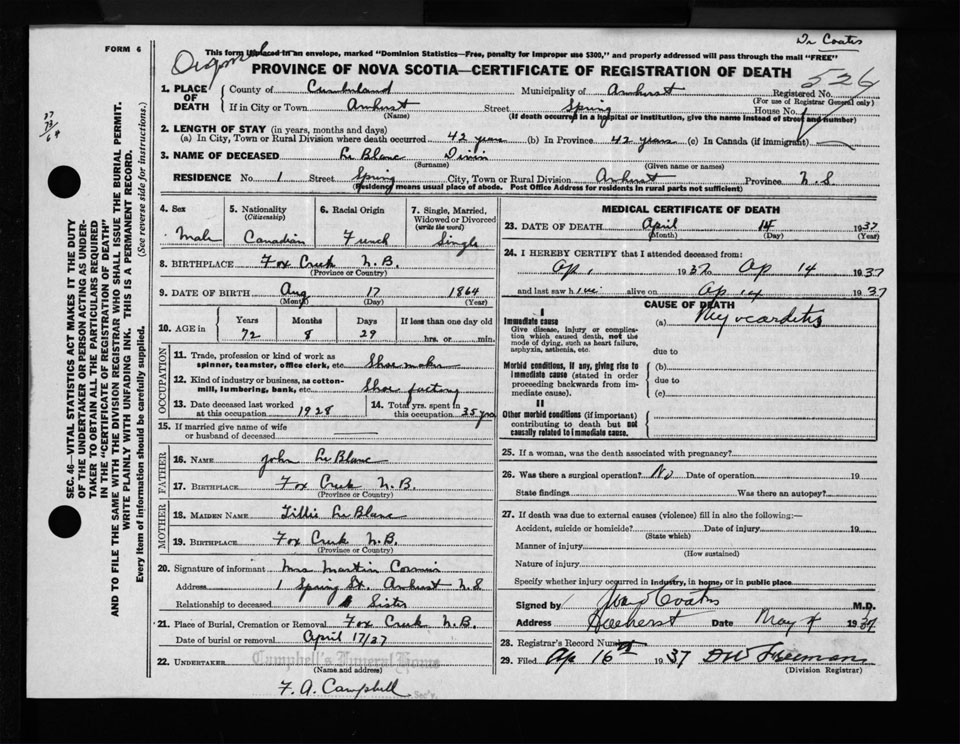 FORM 6
Dr Coates
This form if placed in an envelope, marked "Dominion Statistics—Free, penalty for improper use $300," and properly addressed will pass through the mail "FREE"
PROVINCE OF NOVA SCOTIA—CERTIFICATE OF REGISTRATION OF DEATH
526
1. PLACE OF DEATH County of Cumberland Municipality of Amherst Registered No.
(For use of Registrar General only)
If in City or Town Amherst Street Spring House No. 1
(Name) (If death occurred in a hospital or institution, give the name instead of street and number)
2. LENGTH OF STAY (in years, months and days)
(a) In City, Town or Rural Division where death occurred 42 years (b) In Province 42 years (c) In Canada (if immigrant)
3. NAME OF DECEASED Le Blanc
(Surname) (Given name or names)
RESIDENCE No. 1 Street Spring City, Town or Rural Division Amherst Province N.S
(Residence means usual place of abode. Post Office Address for residents in rural parts not sufficient)
4. Sex Male
5. Nationality (Citizenship) Canadian
6. Racial Origin French
7. Single, Married, Widowed or Divorced (write the word) Single
8. BIRTHPLACE Fox Creek N.B.
(Province or Country)
9. DATE OF BIRTH Aug 17 1864
(Month) (Day) (Year)
10. AGE in Years Months Days If less than one day old
72 8 29 hrs. or min.
OCCUPATION
11. Trade, profession or kind of work as spinner, teamster, office clerk, etc. Shoe maker
12. Kind of industry or business, as cotton-mill, lumbering, bank, etc. Shoe factory
13. Date deceased last worked at this occupation 1928
14. Total yrs. spent in this occupation 35 yrs
15. If married give name of wife or husband of deceased
FATHER
16. NAME John Le Blanc
17. BIRTHPLACE Fox Creek N.B.
(Province or Country)
MOTHER
18. MAIDEN NAME Tillie Le Blanc
19. BIRTHPLACE Fox Creek N.B.
(Province or Country)
20. Signature of informant Mrs Martin Cormier
Address 1 Spring St. Amherst N.S
Relationship to deceased Sister
21. Place of Burial, Cremation or Removal Fox Creek N.B.
Date of burial or removal April 17/37
22. UNDERTAKER Campbell's Funeral Home
(Name and address)
F. A. Campbell Sec'y.
MEDICAL CERTIFICATE OF DEATH
23. DATE OF DEATH April 14 1937
(Month) (Day) (Year)
24. I HEREBY CERTIFY that I attended deceased from:
Ap. 1937 to Ap 14 1937
and last saw him alive on Ap 14 1937
CAUSE OF DEATH
I
Immediate cause
Give disease, injury or complication which caused death, not the mode of dying, such as heart failure, asphyxia, asthenia, etc.
(a) Myocarditis
due to
Morbid conditions, if any, giving rise to immediate cause (stated in order proceeding backwards from immediate cause).
(b)
due to
(c)
II
Other morbid conditions (if important) contributing to death but not causally related to immediate cause.
25. If a woman, was the death associated with pregnancy?
26. Was there a surgical operation? No Date of operation 19
State findings Was there an autopsy?
27. If death was due to external causes (violence) fill in also the following:—
Accident, suicide or homicide? Date of injury 19
(State which)
Manner of injury
(How sustained)
Nature of injury
Specify whether injury occurred in industry, in home, or in public place
Signed by Coates M.D.
Address Amherst Date May 4 1937
28. Registrar's Record Number
29. Filed Ap 16th 1937 DW Freeman
(Division Registrar)
SEC. 46—VITAL STATISTICS ACT MAKES IT THE DUTY
OF THE UNDERTAKER OR PERSON ACTING AS UNDER-
TAKER TO OBTAIN ALL THE PARTICULARS REQUIRED
IN THE "CERTIFICATE OF REGISTRATION OF DEATH"
AND TO FILE THE SAME WITH THE DIVISION REGISTRAR WHO SHALL ISSUE THE BURIAL PERMIT.
WRITE PLAINLY WITH UNFADING INK. THIS IS A PERMANENT RECORD.
Every item of information should be carefully supplied. (See reverse side for instructions.)